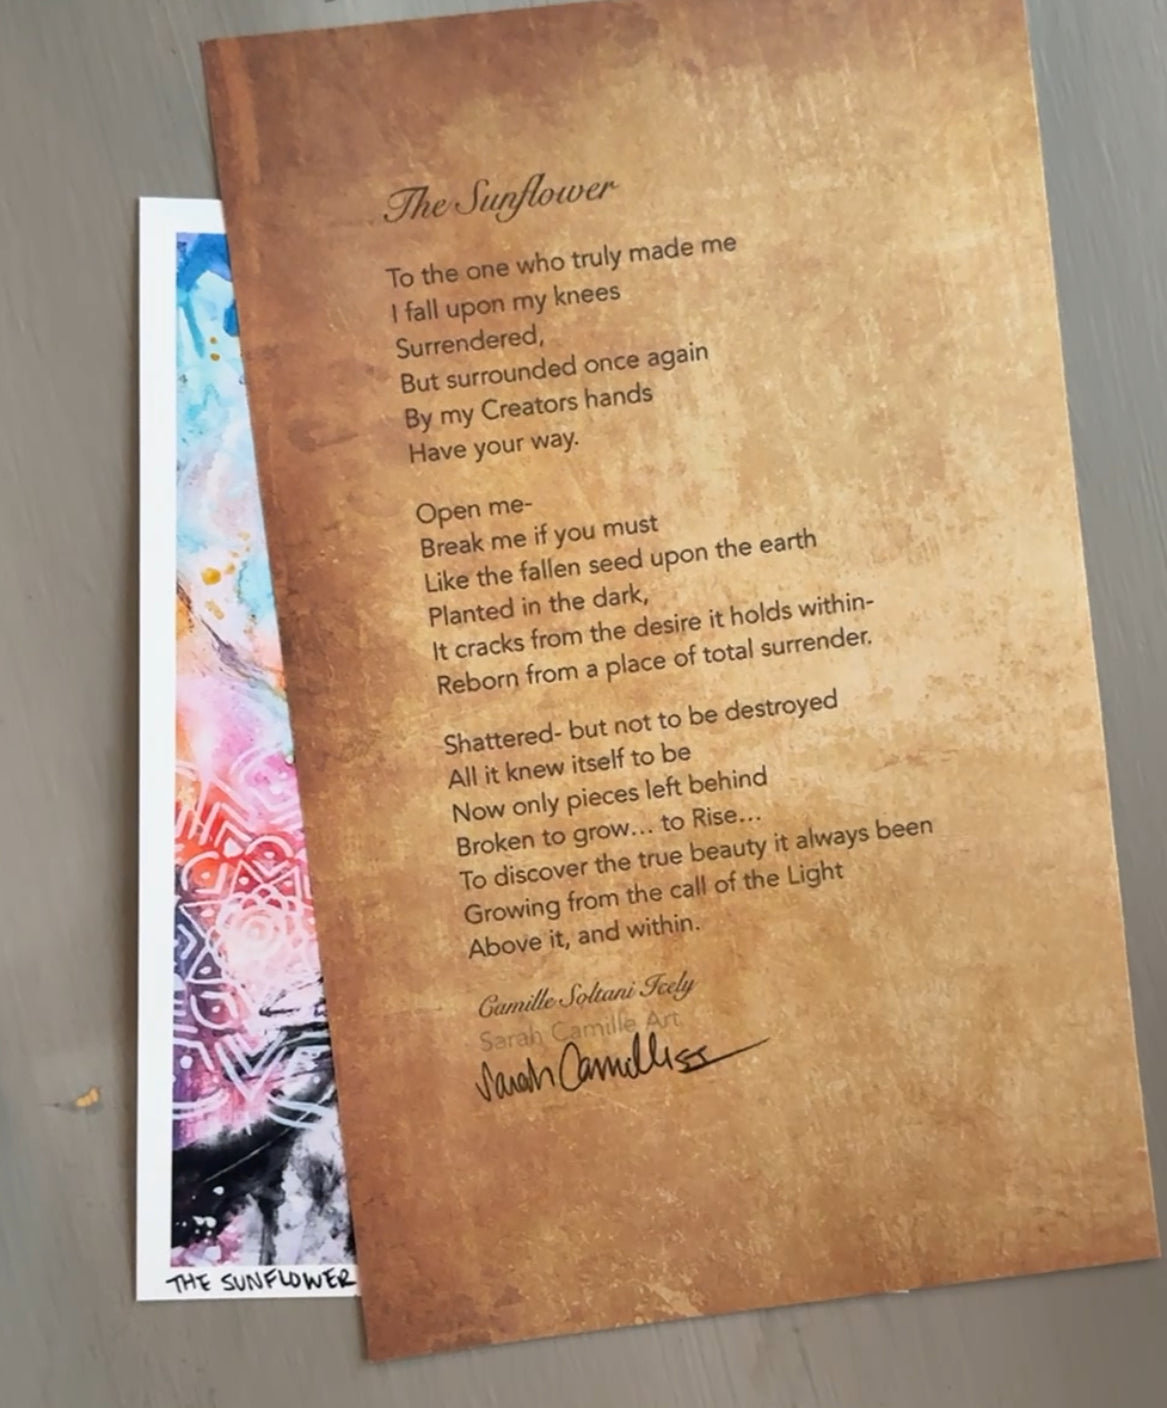 The Sunflower
To the one who truly made me
I fall upon my knees
Surrendered,
But surrounded once again
By my Creators hands
Have your way.
Open me-
Break me if you must
Like the fallen seed upon the earth
Planted in the dark,
It cracks from the desire it holds within-
Reborn from a place of total surrender.
Shattered- but not to be destroyed
All it knew itself to be
Now only pieces left behind
Broken to grow... to Rise...
To discover the true beauty it always been
Growing from the call of the Light
Above it, and within.
Camille Soltani Icely
Sarah Camille Art
Sarah Camille
THE SUNFLOWER